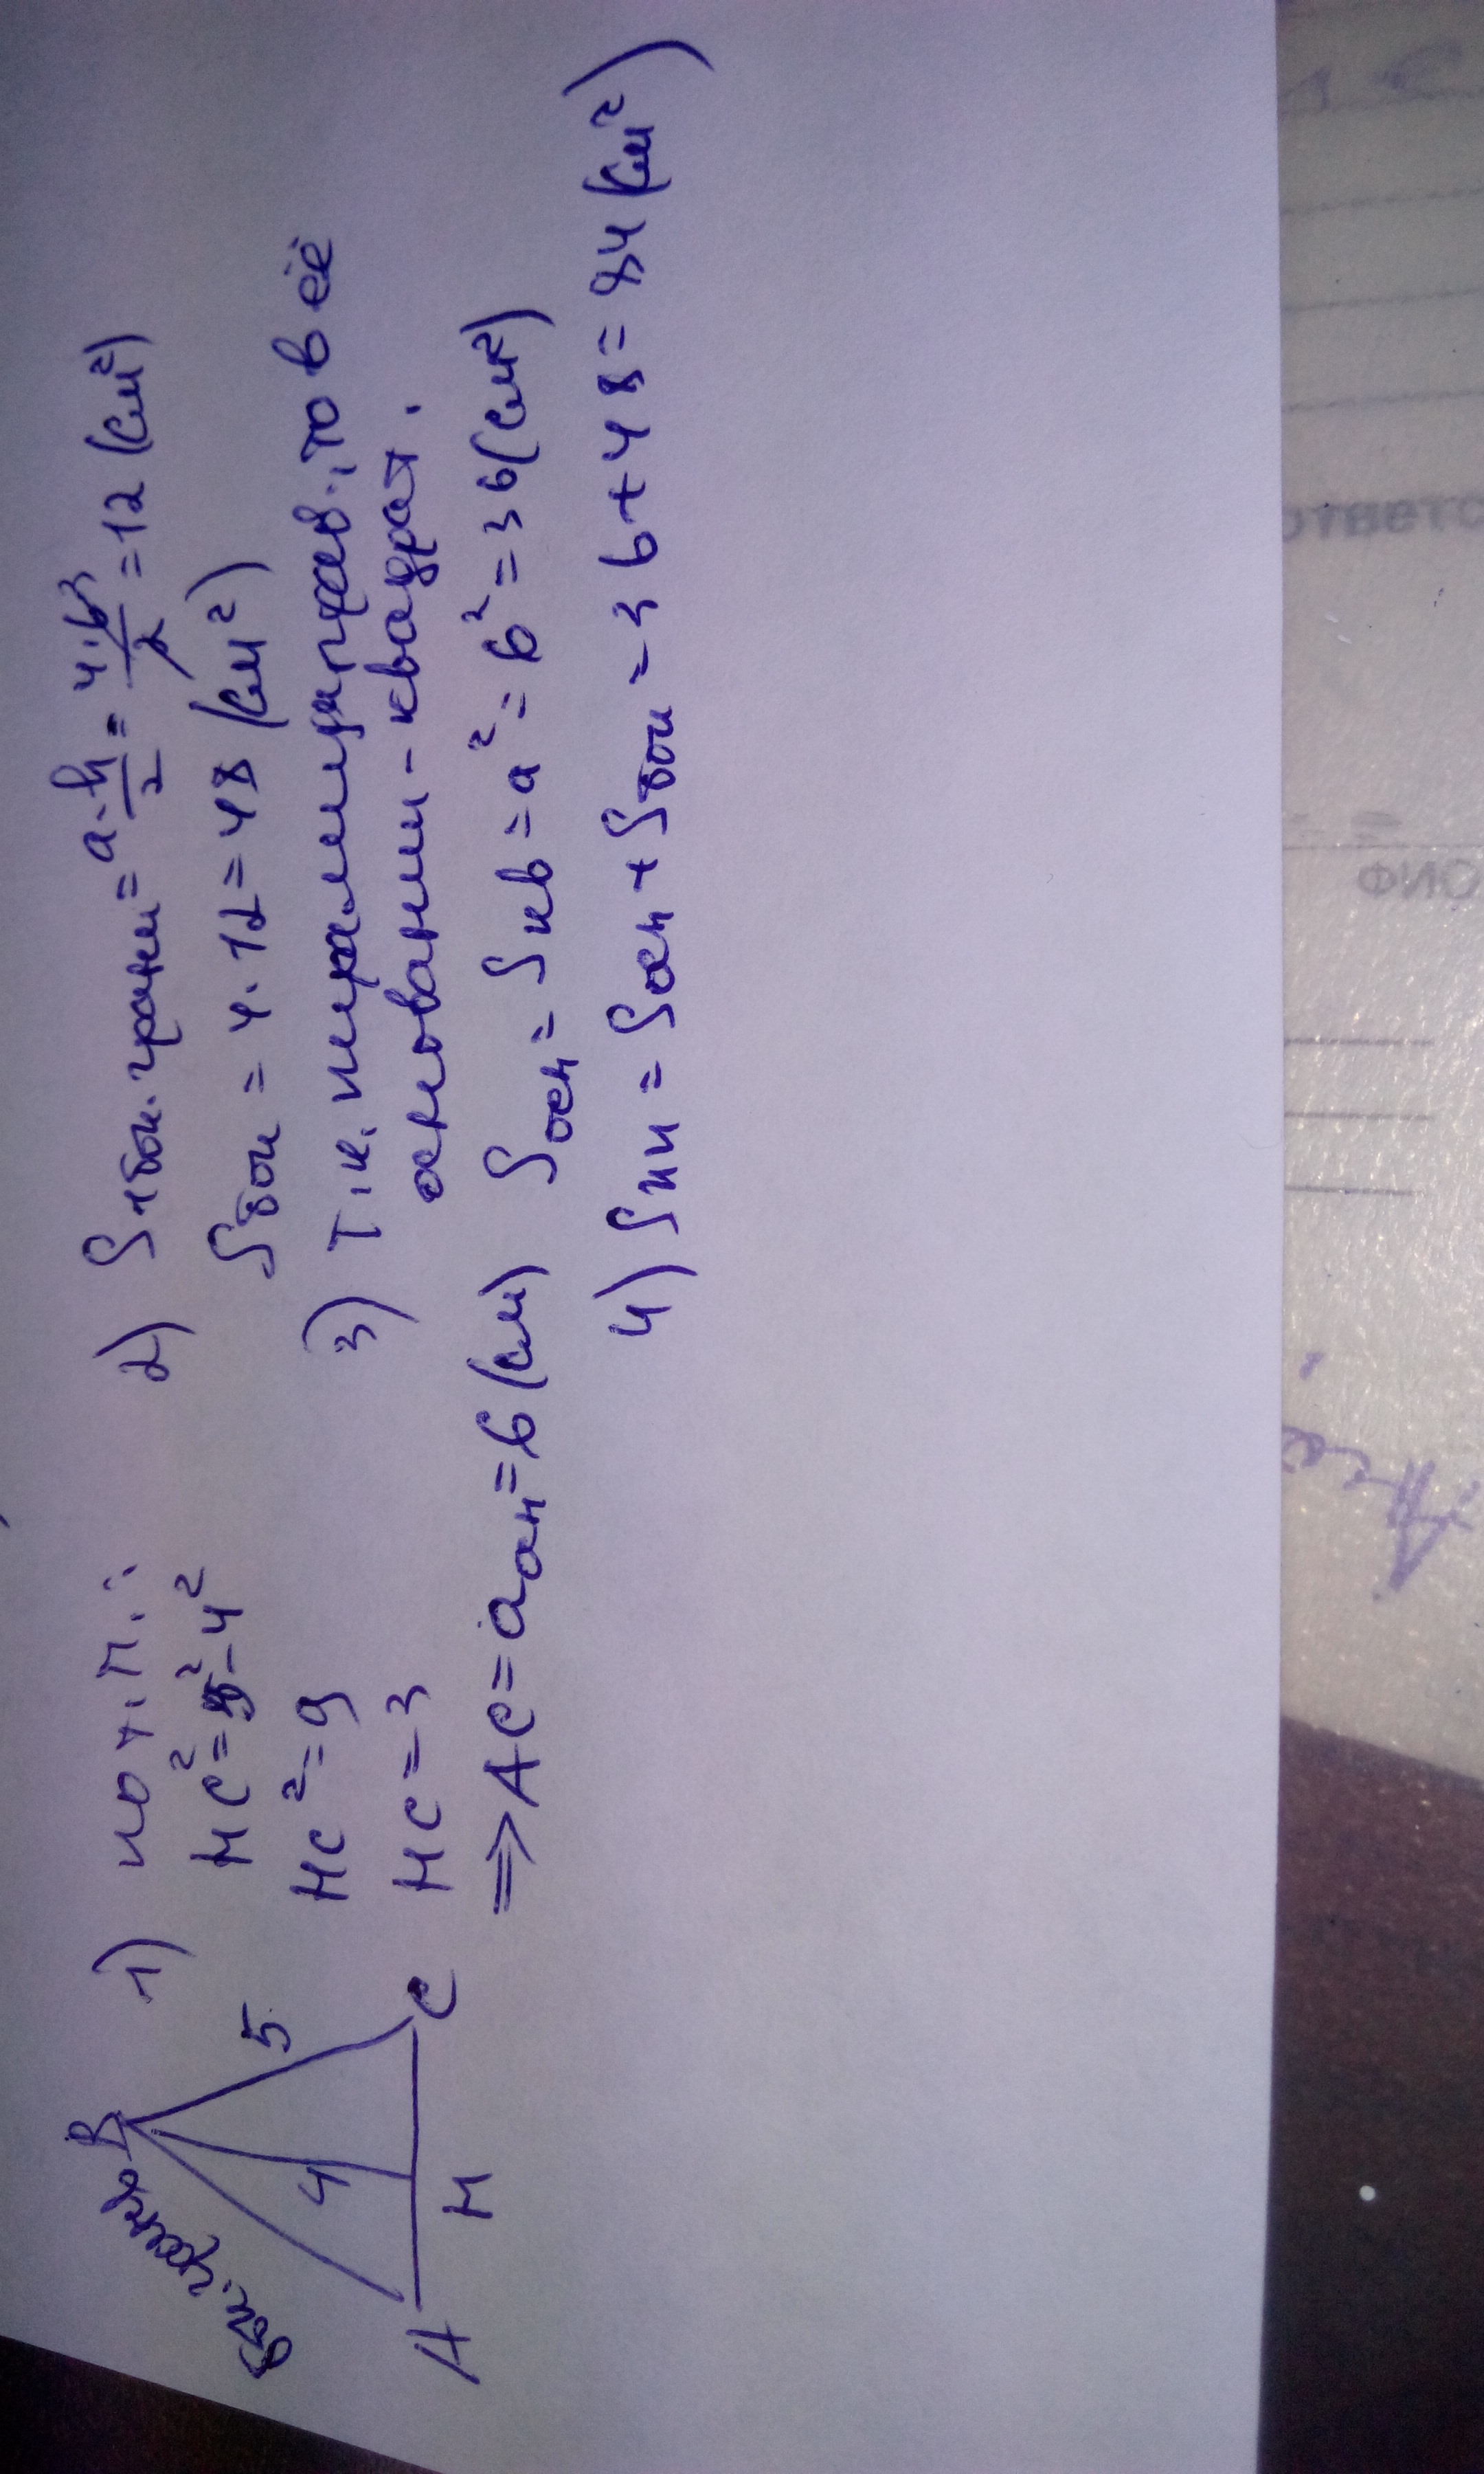 бок. грань
B
5
4
A
H
C
1) по т. П.:
HC²=5²-4²
HC²=9
HC=3
⇒ AC=aосн=6 (см)
2) S1бок. грани=a·h/2=4·6/2=12 (см²)
Sбок = 4·12=48 (см²)
3) Т.к. пирамида прав., то в её
основании - квадрат.
Sосн=Sкв=a²=6²=36(см²)
4) Sпп=Sосн+Sбок=36+48=84(см²)
ответ
ФИО